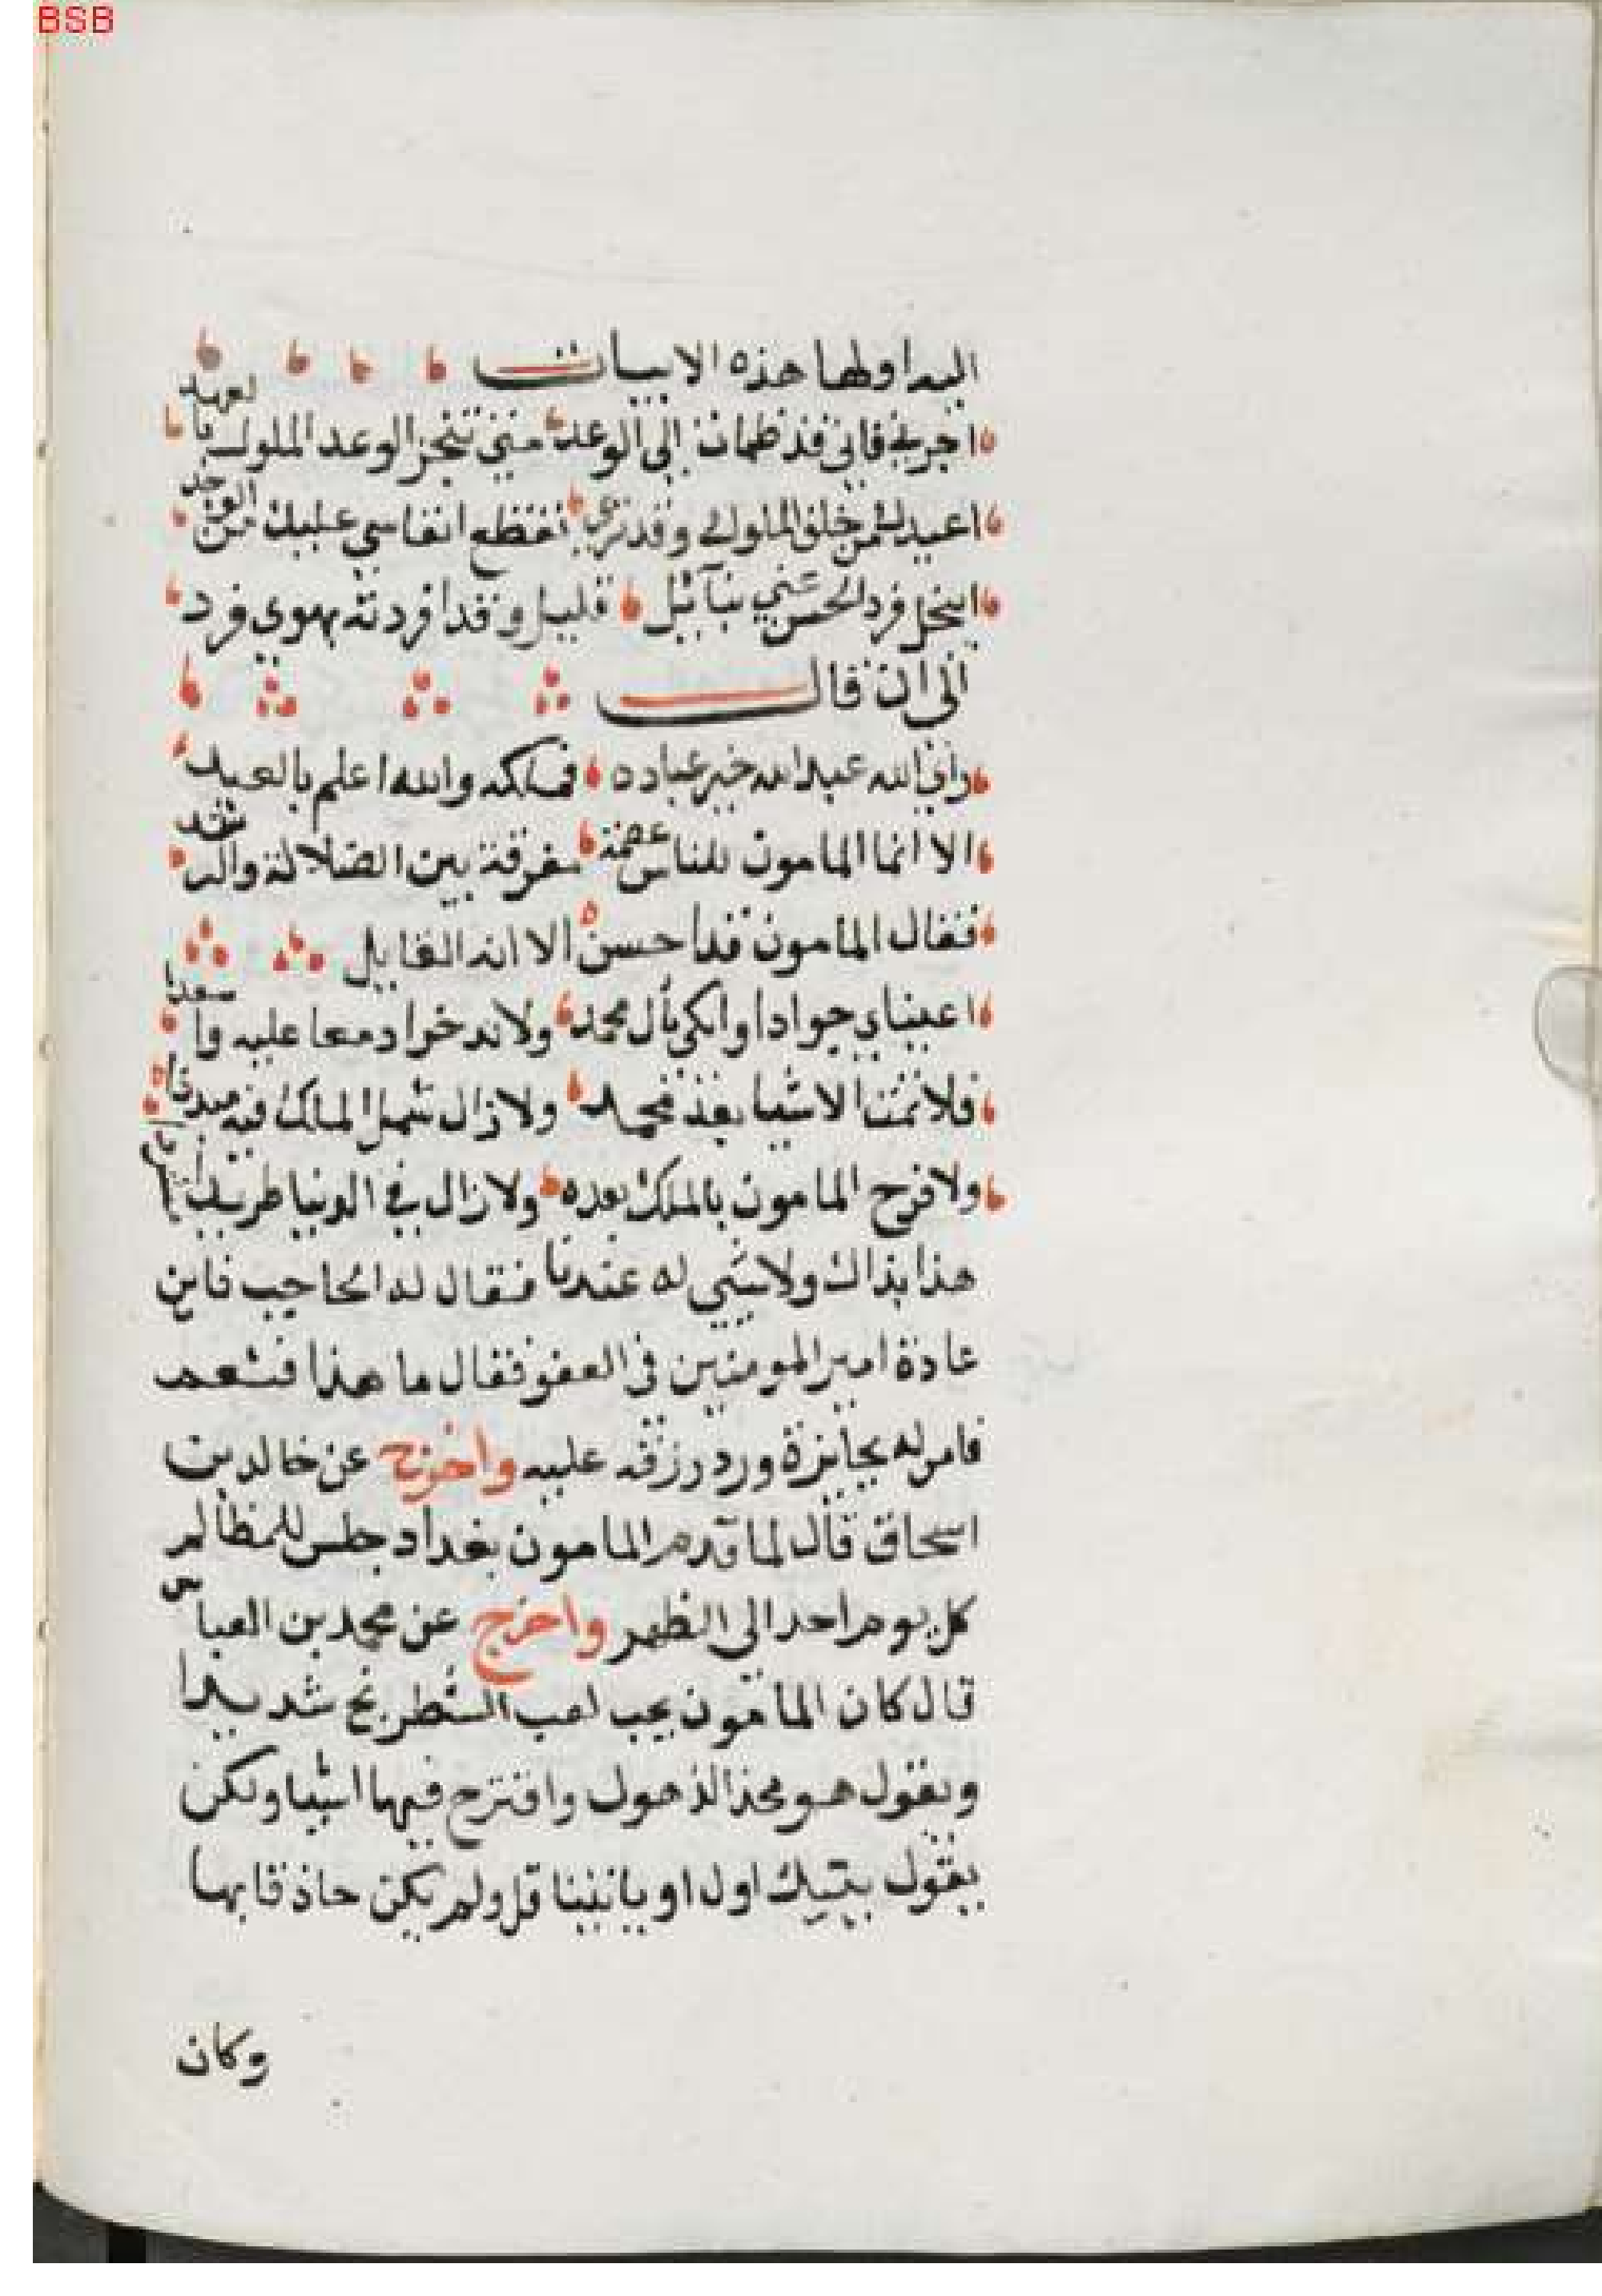 BSB
اليه اولها هذه الابيات
اجرني فاني قد ظمات الى الوعد متى تنجز الوعد الموكد بالعهد
اعيذك من خلق الملوك وقد ترى تقطع انفاسي عليك من الوجد
ايبخل فرد الحسن عني بنآئل قليل وقد افردته بهوى فرد
الى ان قال
راى الله عبد الله خير عباده فملكه والله اعلم بالعبد
الا انما المامون للناس عصمة مفرقة بين الضلالة والرشد
فقال المامون قد احسن الا انه القايل
اعيناي جوادا وابكي بآل محمد ولا تدخرا دمعا عليه واسعدا
فلا تمت الاشيا بعد محمد ولا زال شمل الملك فيه مبددا
ولا فرح المامون بالملك بعده ولا زال في الدنيا طريدا مشردا
هذا بذاك ولا شي له عندنا فقال له الحاجب فاين
عادة امير المومنين في العفو فقال ما هذا فنعم
فامر له بجايزة ورد رزقه عليه واخرج عن خالد بن
اسحاق قال لما قدم المامون بغداد جلس للمظالم
كل يوم احد الى الظهر واخرج عن محمد بن العباس
قال كان المامون يحب لعب الشطرنج شديدا
ويقول هو محذ الذهول واقترح فيها اشيا ولكن
يقول اول او ياتينا قل ولم يكن حاذقا بها
وكان